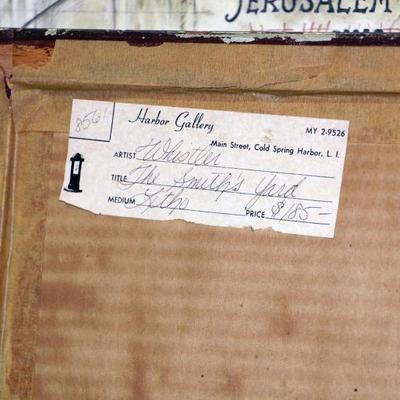 JERUSALEM
8561
Harbor Gallery
MY 2-9526
Main Street, Cold Spring Harbor, L. I.
ARTIST Whistler
TITLE The Smith's Yard
MEDIUM Litho PRICE $185-